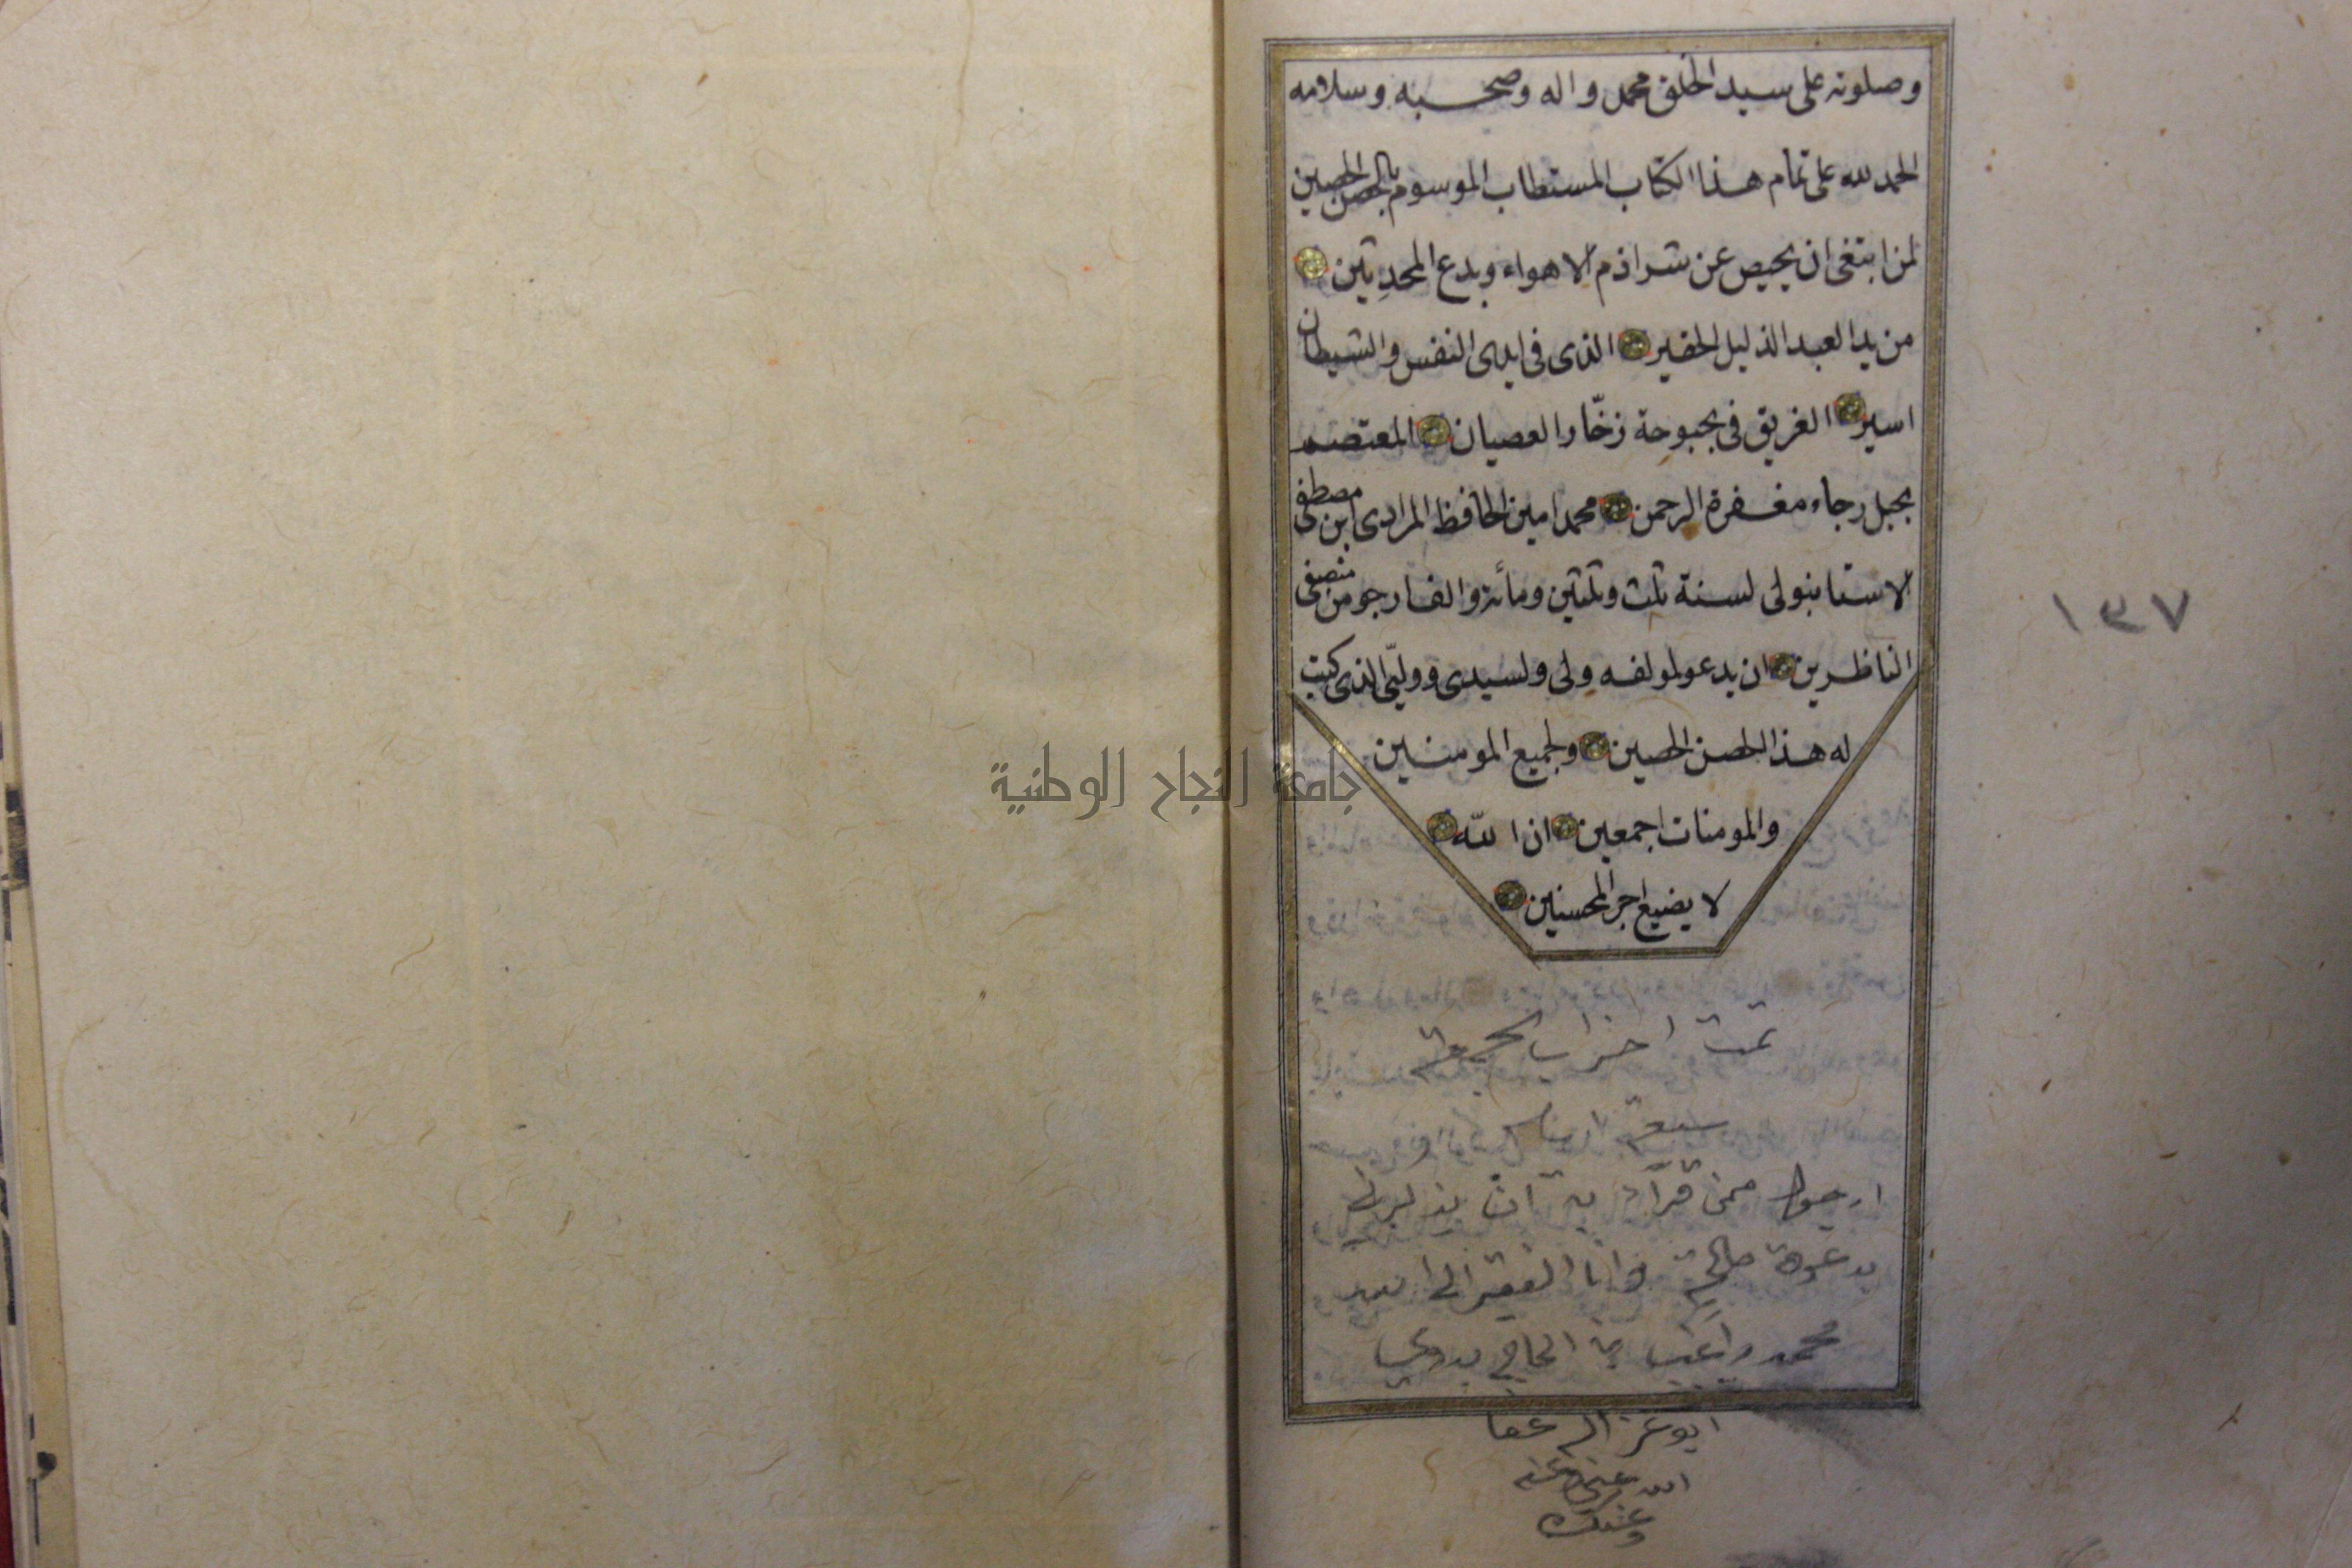 وصلوته على سيد الخلق محمد واله وصحبه وسلامه
الحمد لله على تمام هذا الكتاب المستطاب الموسوم بالحصن الحصين
لمن ابتغى ان يحيص عن شراذم الاهواء وبدع المحدثين
من يد العبد الذليل الحقير الذى فى ايدى النفس والشيطان
اسير الغريق فى بحبوحة زخّار العصيان المعتصم
بحبل رجاء مغفرة الرحمن محمد امين الحافظ المرادى ابن مصطفى
الاستانبولى لسنة ثلث وثلثين ومأئه والف ارجو من منصفى
الناظرين ان يدعو لمولفه ولى ولسيدى ووليّى الذى كتبت
له هذا الحصن الحصين ولجميع المومنين
والمومنات اجمعين ان الله
لا يضيع اجر المحسنين
١٣٧
تمت احزاب الجمعة
سبعة
ارجوا ممن قرأ به ان يذكرنا
بدعوة صالحة وانا الفقير الى الله
محمد راغب بن الحاج بدوي
ابو غزاله عفا
الله عنى وعنه
وعنك
جامعة النجاح الوطنية